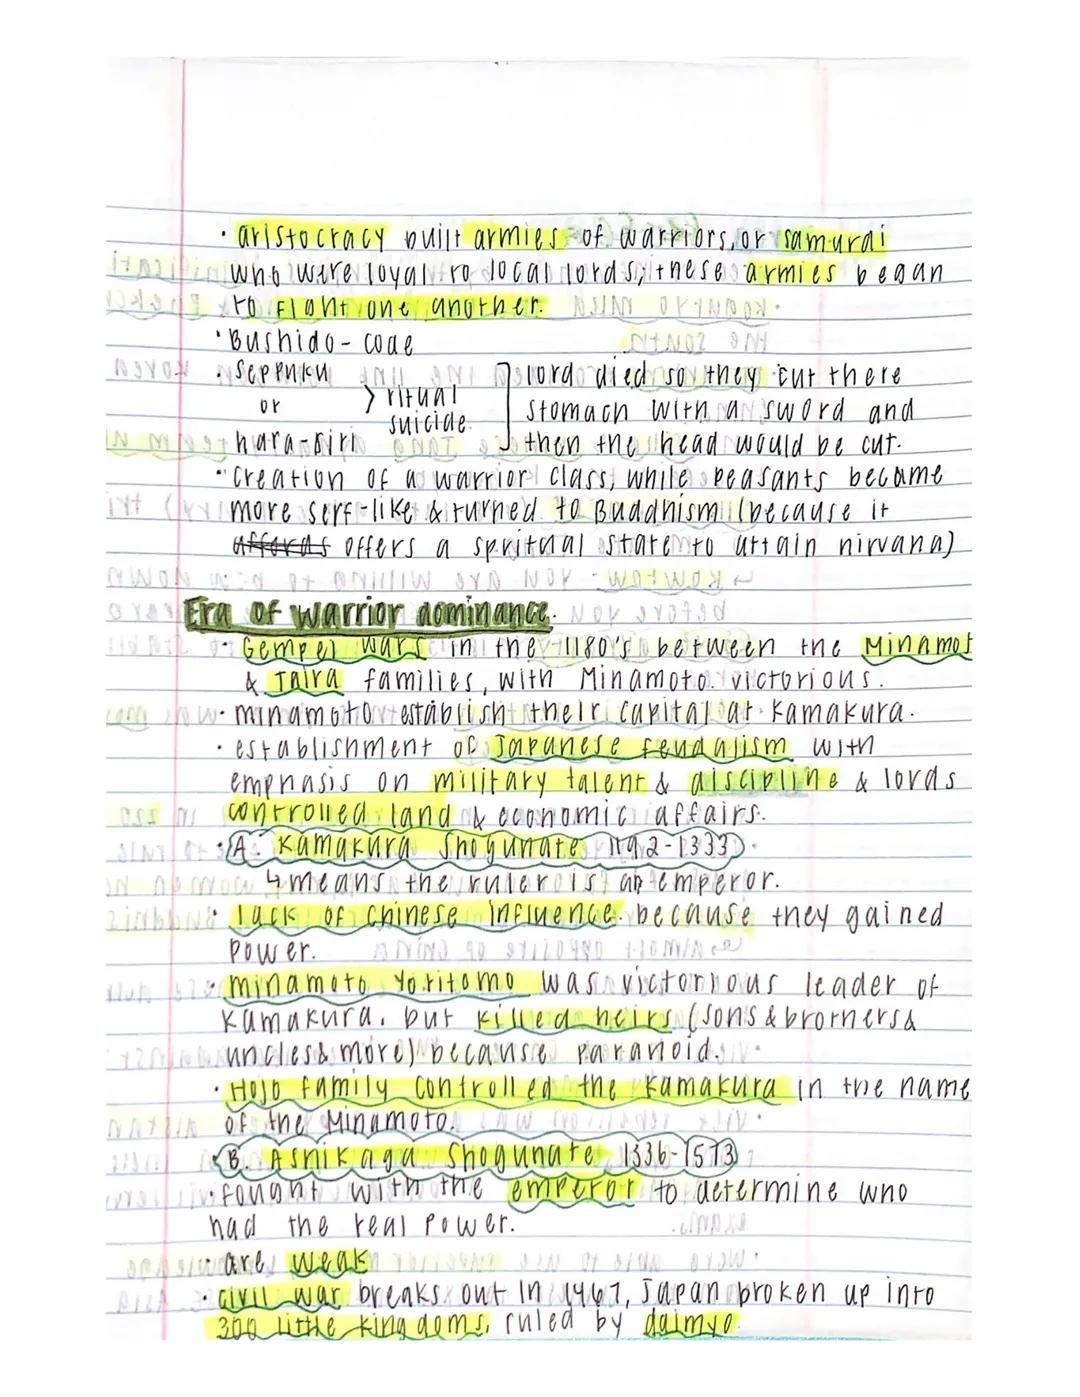 · aristocracy built armies of warriors, or samurai
who were loyal to local lords; these armies began
to fight one another.
· Bushido - code
· Seppuku
or
hara-kiri
> ritual
suicide.
lord died so they cut there
stomach with a sword and
then the head would be cut.
· Creation of a warrior class, while peasants became
more serf-like & turned to Buddhism (because it
affords offers a spritual state to attain nirvana)
Era of warrior dominance.
· Gempei Wars in the 1180's between the Minamot
& Taira families, with Minamoto victorious.
· minamoto establish their capital at Kamakura.
· establishment of Japanese feudalism with
emphasis on military talent & discipline & lords
controlled land & economic affairs.
· A. Kamakura Shogunate 1192-1333
↳ means the ruler is an emperor.
· lack of chinese influence because they gained
power.
· minamoto Yoritomo was victorious leader of
Kamakura, but killed heirs (sons & brothers &
uncles & more) because paranoid.
· Hojo family controlled the Kamakura in the name
of the Minamoto.
· B. Ashikaga Shogunate 1336-1573
· fought with the emperor to determine who
had the real power.
· are weak
· civil war breaks out in 1467, Japan broken up into
300 little kingdoms, ruled by daimyo